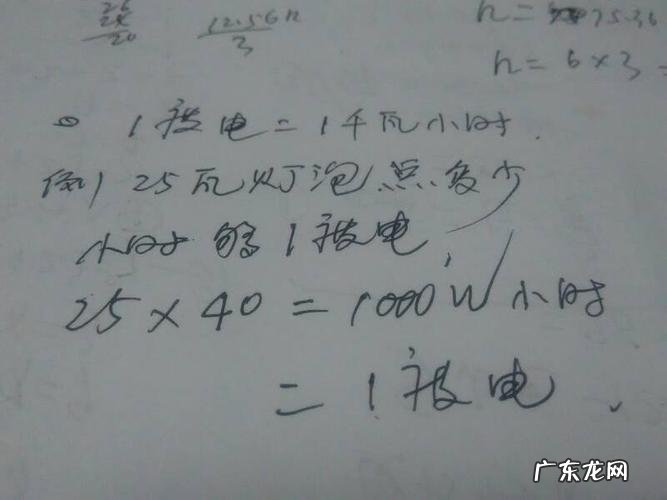 12.56h
3
h= 75.36
h= 6×3
1被电=1千瓦小时.
例) 25瓦灯泡点多少
小时够1被电
25×40=1000W小时
=1被电.
广东龙网